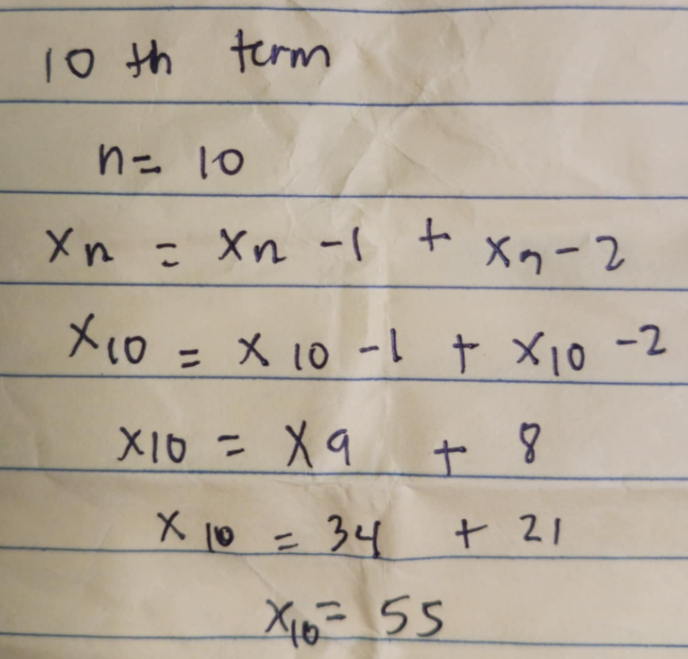 10 th term
n= 10
xn = xn -1 + xn-2
x10 = x10 -1 + x10 -2
x10 = x9 + 8
x10 = 34 + 21
x10= 55